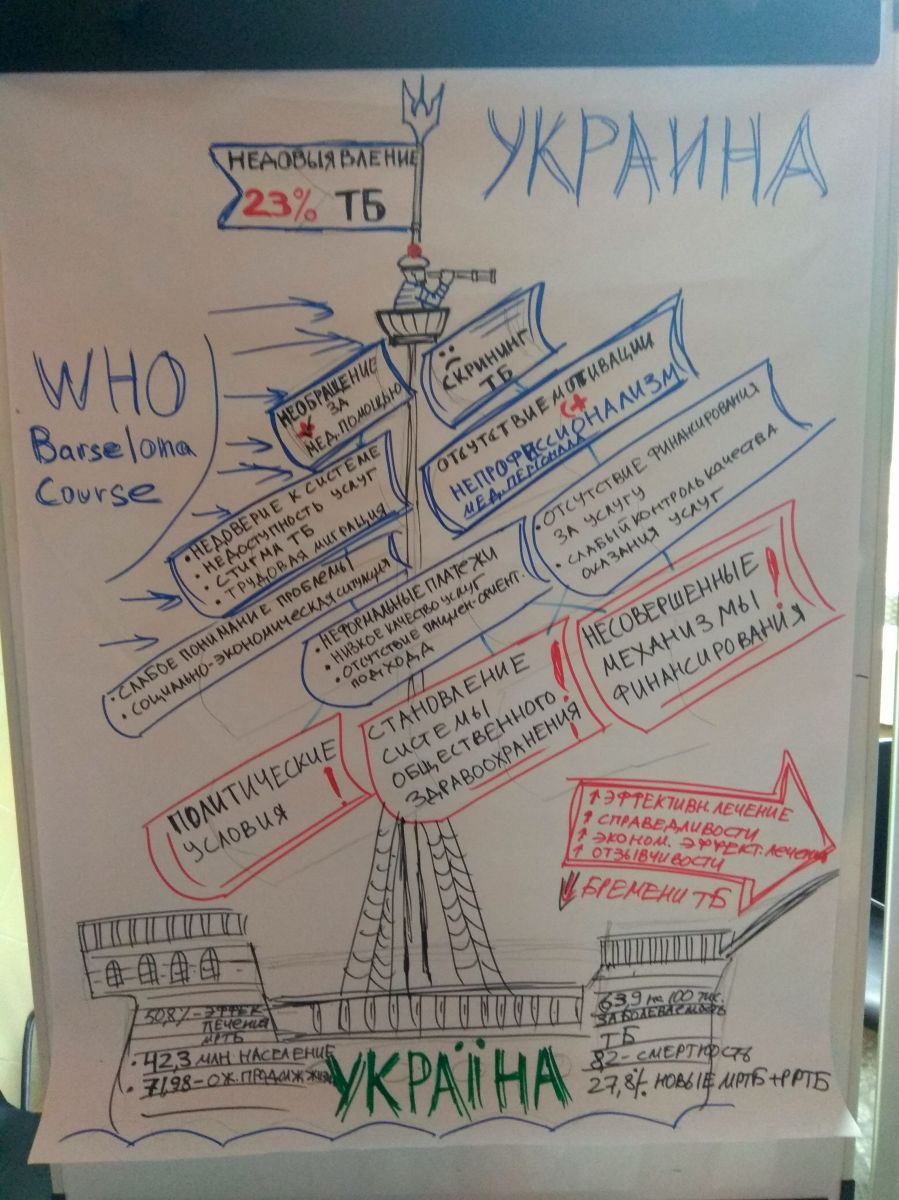 УКРАИНА
НЕДОВЫЯВЛЕНИЕ
23% ТБ
WHO
Barselona
Course
НЕОБРАЩЕНИЕ
ЗА
МЕД. ПОМОЩЬЮ
СКРИНИНГ
ТБ
ОТСУТСТВИЕ МОТИВАЦИИ
НЕПРОФЕССИОНАЛИЗМ
МЕД. ПЕРСОНАЛА
• НЕДОВЕРИЕ К СИСТЕМЕ
• НЕДОСТУПНОСТЬ УСЛУГ
• СТИГМА ТБ
• ТРУДОВАЯ МИГРАЦИЯ
• ОТСУТСТВИЕ ФИНАНСИРОВАНИЯ
ЗА УСЛУГУ
• СЛАБЫЙ КОНТРОЛЬ КАЧЕСТВА
ОКАЗАНИЯ УСЛУГ
• СЛАБОЕ ПОНИМАНИЕ ПРОБЛЕМЫ
• СОЦИАЛЬНО-ЭКОНОМИЧЕСКАЯ СИТУАЦИЯ
• НЕФОРМАЛЬНЫЕ ПЛАТЕЖИ
• НИЗКОЕ КАЧЕСТВО УСЛУГ
• ОТСУТСТВИЕ ПАЦИЕН-ОРИЕНТ.
ПОДХОДА
НЕСОВЕРШЕННЫЕ !
МЕХАНИЗМЫ
ФИНАНСИРОВАНИЯ
СТАНОВЛЕНИЕ !
СИСТЕМЫ
ОБЩЕСТВЕННОГО !
ЗДРАВООХРАНЕНИЯ !
ПОЛИТИЧЕСКИЕ
УСЛОВИЯ !
↑ ЭФФЕКТИВН. ЛЕЧЕНИЕ
↑ СПРАВЕДЛИВОСТИ
↑ ЭКОНОМ. ЭФФЕКТ. ЛЕЧЕНИЯ
↑ ОТЗЫВЧИВОСТИ
↓ БРЕМЕНИ ТБ
ЛЕЧЕНИЯ
МРТБ
• 42,3 МЛН. НАСЕЛЕНИЕ
• 71,98 - ОЖ. ПРОДОЛЖ. ЖИЗНИ
УКРАЇНА
63,9 на 100 тыс.
ЗАБОЛЕВАЕМОСТЬ
ТБ
СМЕРТНОСТЬ
27,8% НОВЫЕ МРТБ + РРТБ